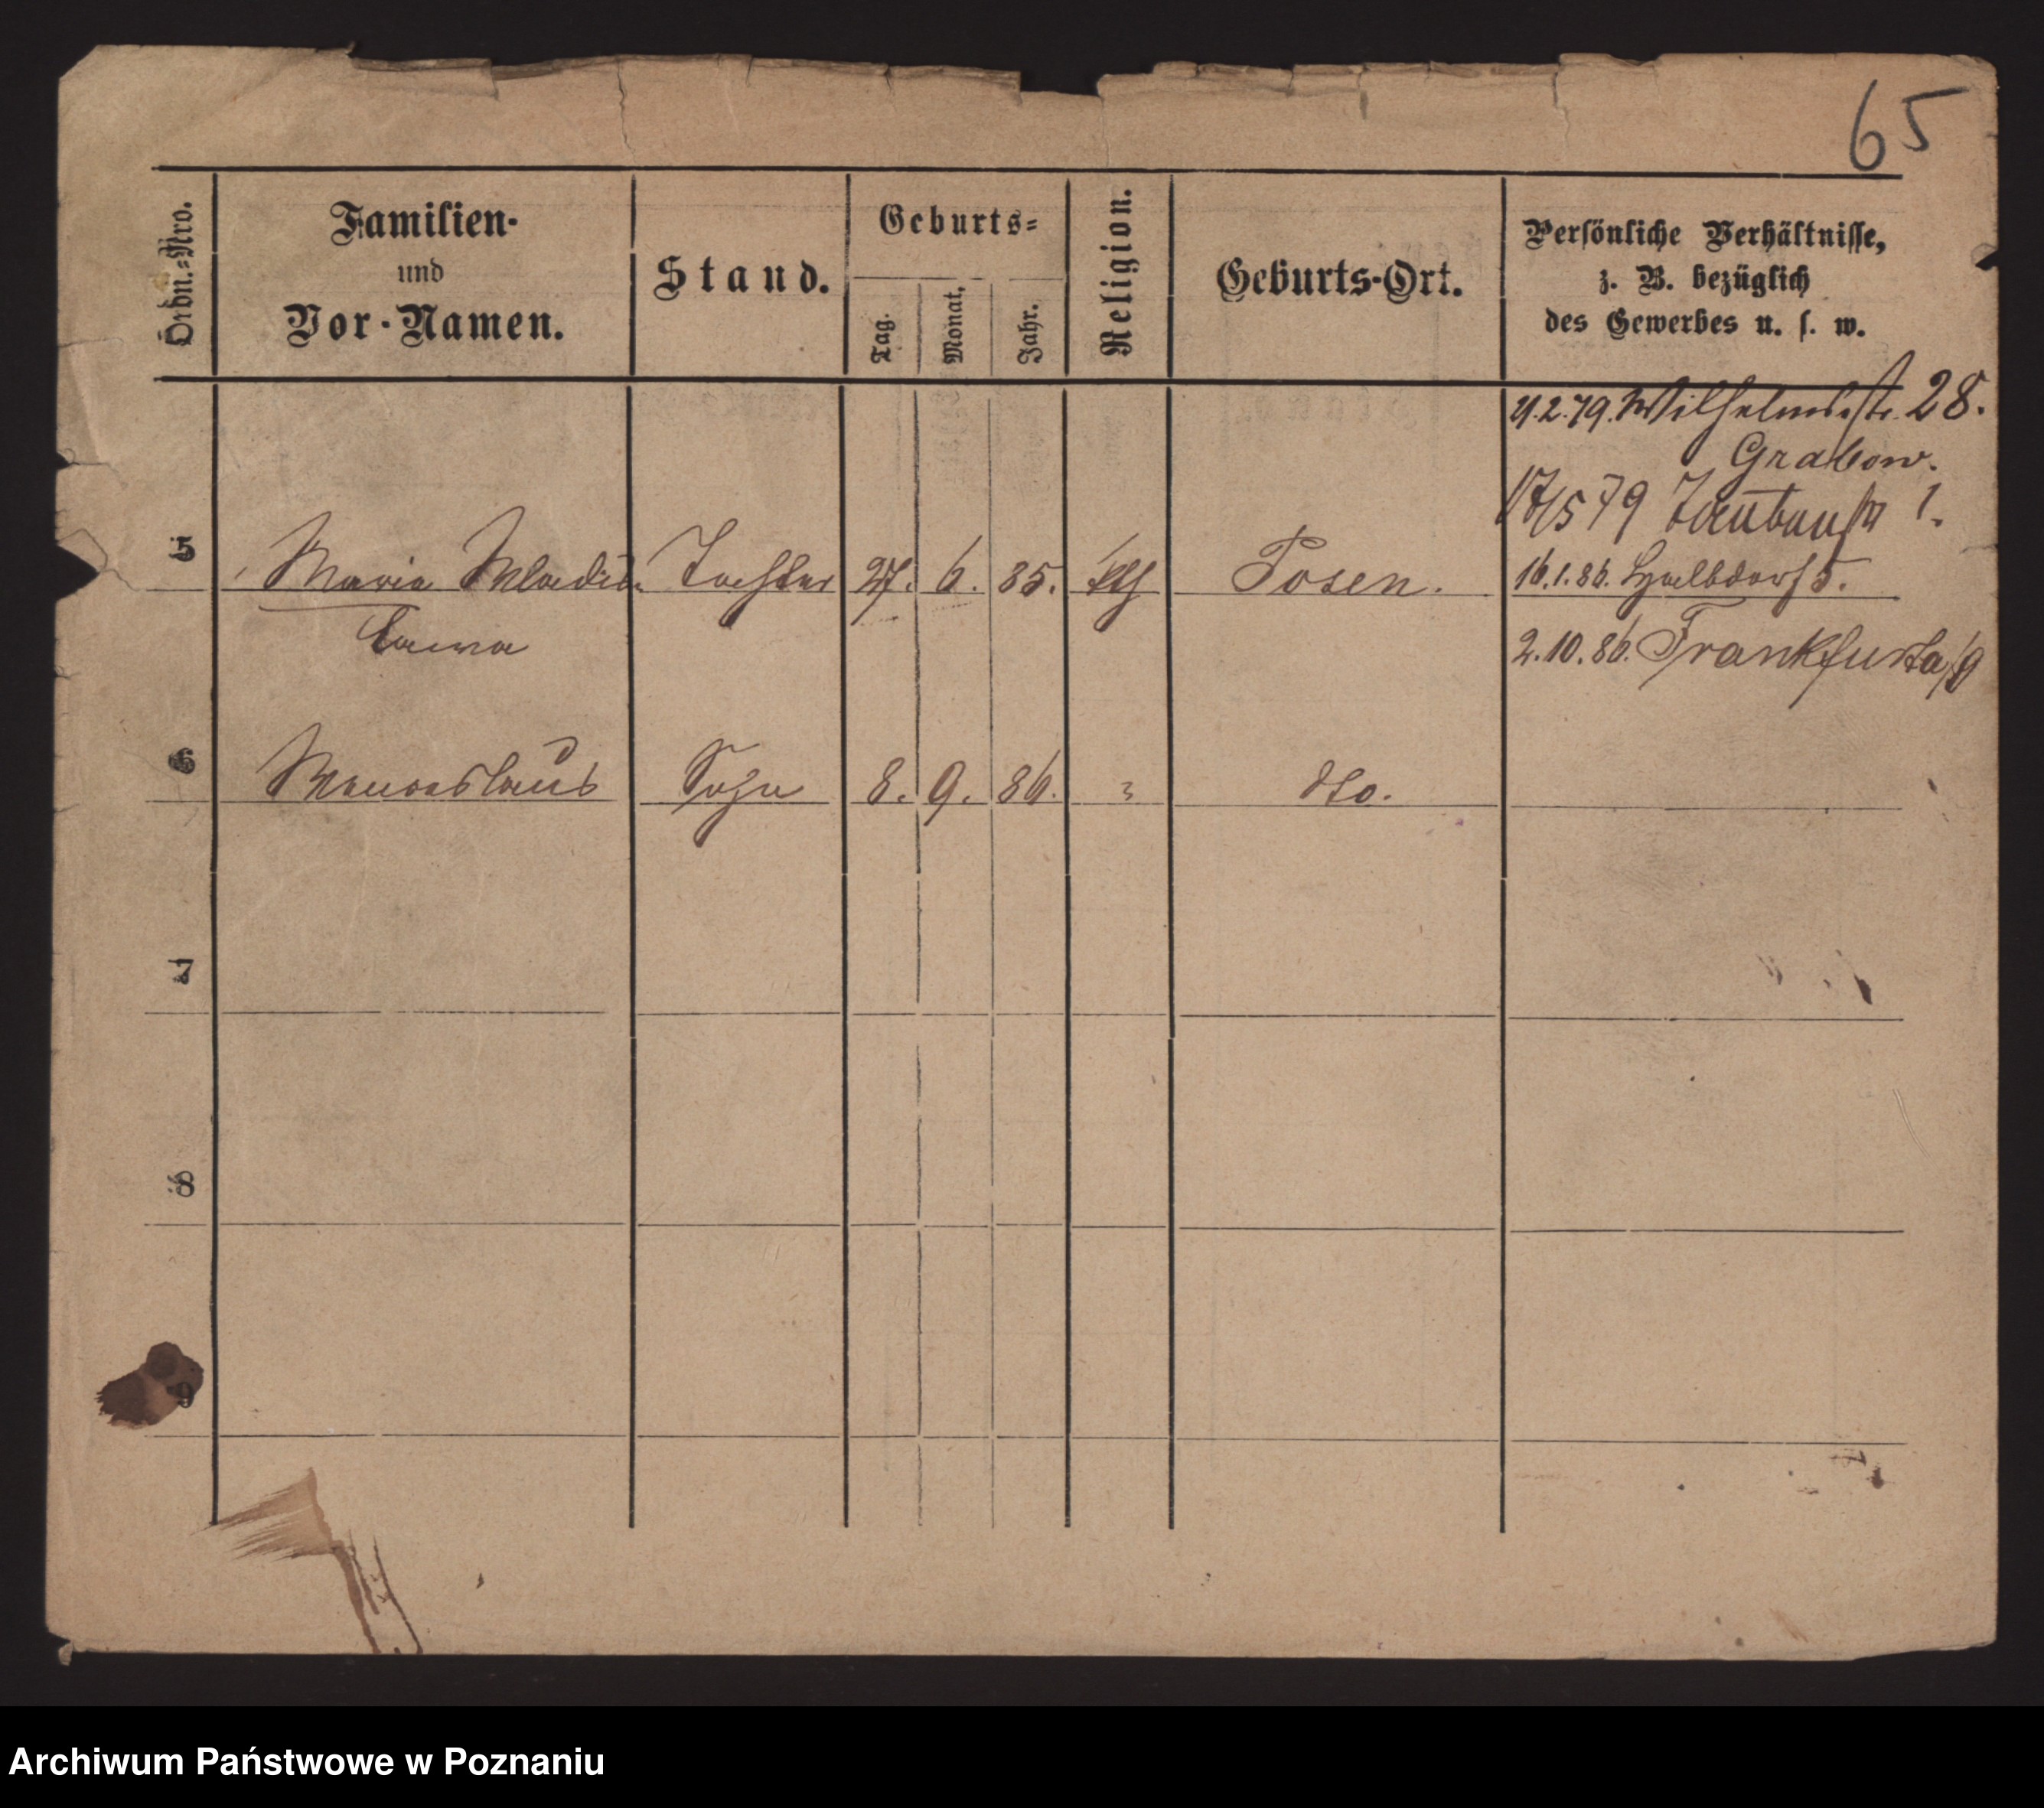 65
Ordn.-Nro.
Familien-
und
Vor-Namen.
Stand.
Geburts-
Tag.
Monat.
Jahr.
Religion.
Geburts-Ort.
Persönliche Verhältnisse,
z. B. bezüglich
des Gewerbes u. s. w.
2.79. Wilhelmsstr. 28.
Grabow.
17/5 79 1.
5 Maria Wladis Tochter 27. 6. 85. kth Posen. 16.1.86. Halbdorfs 5.
lawa
2.10.86. Frankfurt a/
6 Sohn 8. 9. 86. dto.
7
8
9
Archiwum Państwowe w Poznaniu